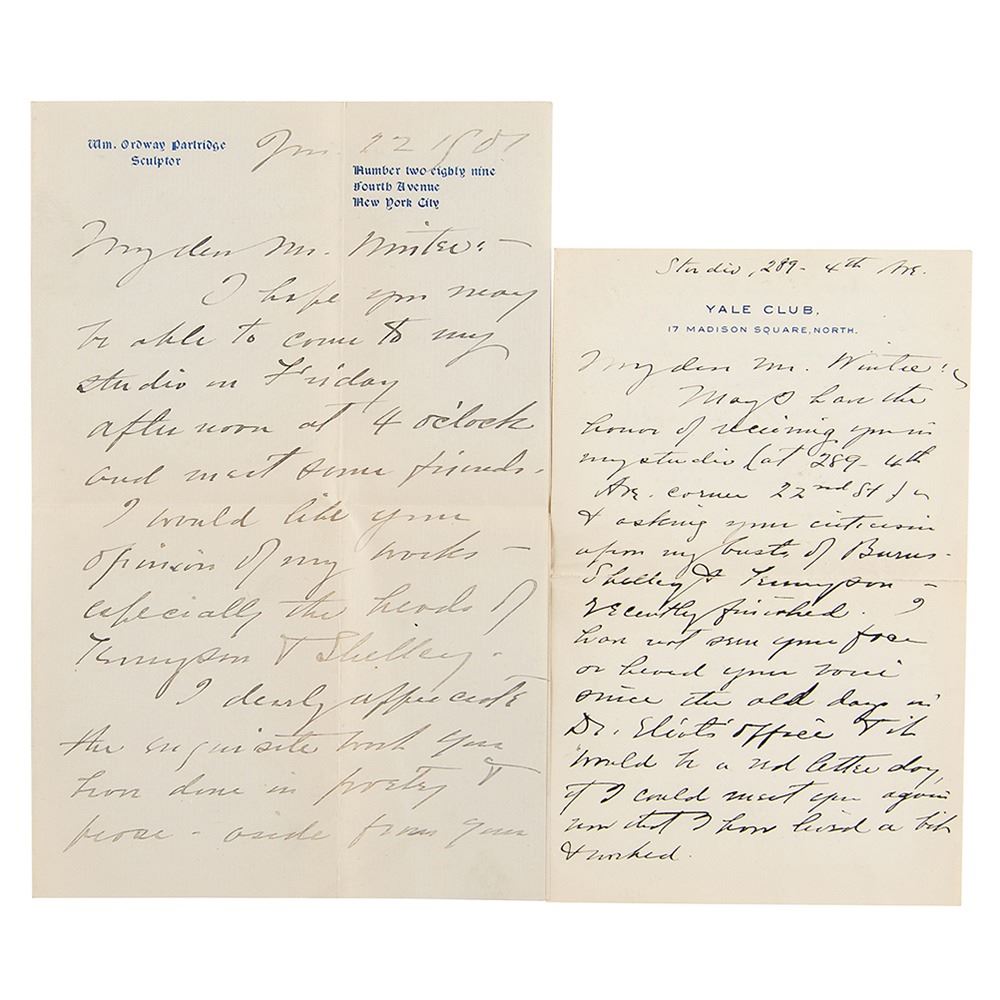 Wm. Ordway Partridge
Sculptor
22 1901
Number two-eighty nine
Fourth Avenue
New York City
My dear Mr. Winter:—
I hope you may
be able to come to my
studio on Friday
afternoon at 4 o'clock
and meet some friends.
I would like your
opinion of my works —
especially the heads of
Tennyson & Shelley.
I dearly appreciate
the exquisite work you
have done in poetry &
prose - aside from your
Studio, 289 - 4th Ave.
YALE CLUB.
17 MADISON SQUARE, NORTH.
My dear Mr. Winter:
May I have the
honor of receiving you in
my studio (at 289 - 4th
Ave. corner 22nd St)
& asking your criticism
upon my busts of Burns
Shelley & Tennyson —
recently finished. I
have not seen your face
or heard your voice
since the old days in
Dr. Eliot's office & it
would be a red letter day,
if I could meet you again
now that I have lived a bit
& worked.